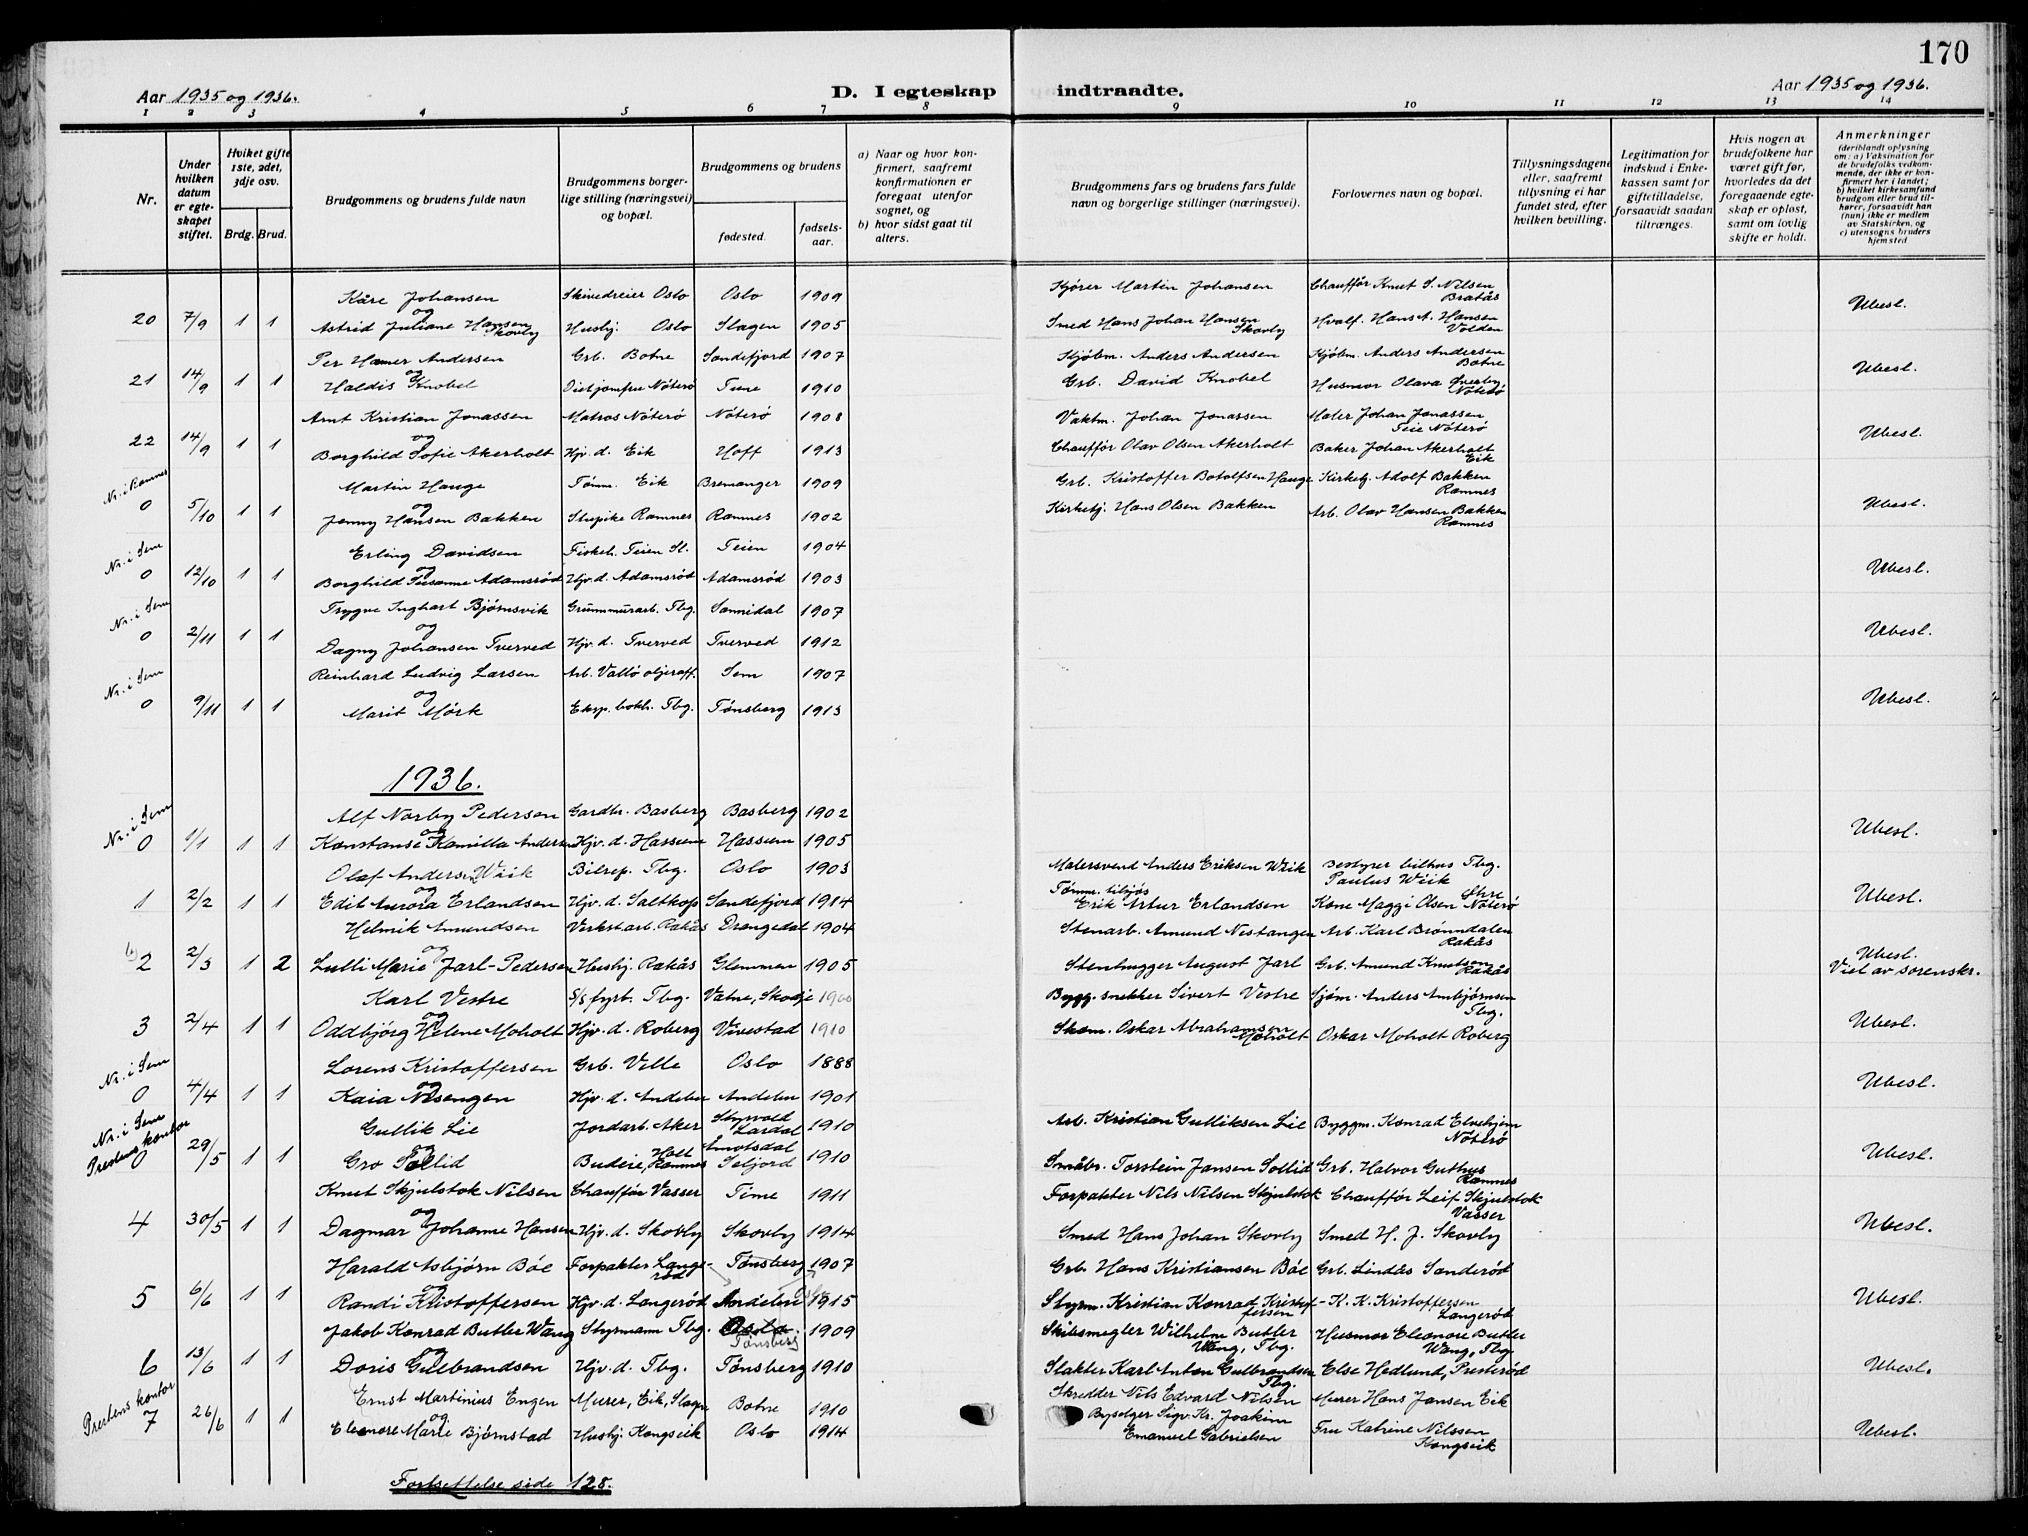 170
Aar 1935 og 1936.
D. I egteskap indtraadte.
Aar 1935 og 1936.
1 2 3 4 5 6 7 8 9 10 11 12 13 14
Nr.
Under hvilken datum er egteskapet stiftet.
Hvilket gifte 1ste, 2det, 3dje osv.
Brdg. Brud.
Brudgommens og brudens fulde navn
Brudgommens borgerlige stilling (næringsvei) og bopæl.
Brudgommens og brudens
fødested. fødselsaar.
a) Naar og hvor konfirmert, saafremt konfirmationen er foregaat utenfor sognet, og
b) hvor sidst gaat til alters.
Brudgommens fars og brudens fars fulde navn og borgerlige stillinger (næringsvei).
Forlovernes navn og bopæl.
Tillysningsdagene eller, saafremt tillysning ei har fundet sted, efter hvilken bevilling.
Legitimation for indskud i Enkekassen samt for giftetilladelse, forsaavidt saadan tiltrænges.
Hvis nogen av brudefolkene har været gift før, hvorledes da det foregaaende egteskap er opløst, samt om lovlig skifte er holdt.
Anmerkninger
(deriblandt oplysning om: a) Vaksination for de brudefolks vedkommende, der ikke er konfirmert her i landet;
b) hvilket kirkesamfund brudgom eller brud tilhører, forsaavidt han (hun) ikke er medlem av Statskirken, og
c) utensogns bruders hjemsted
Kåre Johansen Skinedreier Oslo Oslo 1909 Kjører Martin Johansen Chauffør Knut S. Nilsen Bratås
20 7/9 1 1 og Astrid Juliane Hansen Skovly Husbj. Oslo Slagen 1905 Smed Hans Johan Hansen Skovly Hvalf. Hans A. Hansen Volden Ubesl.
Per Hamer Andersen Grb. Botne Sandefjord 1907 Skjøbm. Anders Andersen Kjøbm. Anders Andersen Botne
21 14/9 1 1 og Haldis Knobel Dietjomfru Nøterø Tune 1910 Grb. David Knobel Husmor Olava Overby Nøterø Ubesl.
Arnt Kristian Jonassen Matros Nøterø Nøterø 1908 Vaktm. Johan Jonassen Maler Johan Jonassen Teie Nøterø
22 14/9 1 1 og Borghild Sofie Akerholt Hjv. d. Eik Hoff 1913 Chauffør Olav Olsen Akerholt Baker Johan Akerholt Eik Ubesl.
Martin Hauge Tømm. Eik Bremanger 1909 Grb. Kristoffer Botolfsen Hauge Kirketj. Adolf Bakken Ramnes
Nr. i Ramnes 0 5/10 1 1 og Jenny Hansen Bakken Stupike Ramnes Ramnes 1902 Kirketj. Hans Olsen Bakken Arb. Olav Hansen Bakken Ramnes Ubesl.
Erling Davidsen Fiskeh. Teien Sl. Teien 1904
Nr. i Sem 0 12/10 1 1 og Borghild Susanne Adamsrød Hjv. d. Adamsrød Adamsrød 1903 Ubesl.
Trygve Inghart Bjørnsvik Grunnmurarb. Tbg. Sannidal 1907
Nr. i Sem 0 2/11 1 1 og Dagny Johansen Tverved Hjv. d. Tverved Tverved 1912 Ubesl.
Reinhard Ludvig Larsen Arb. Vallø oljeraff. Sem 1907
Nr. i Sem 0 9/11 1 1 og Marit Mørk Eksp. bokh. Tbg. Tønsberg 1913 Ubesl.
1936.
Alf Norby Pedersen Gardbr. Basberg Basberg 1902
Nr. i Sem 0 1/1 1 1 og Konstanse Kamilla Andersen Hjv. d. Hassum Hassum 1905 Ubesl.
Olaf Andersen Wiik Bilrep. Tbg. Oslo 1903 Malersvend Anders Eriksen Wiik Bestyrer bilhus Tbg. Paulus Wiik
1 2/2 1 1 og Edit Aurora Erlandsen Hjv. d. Saltkop Sandefjord 1914 Tømm. tilsjøs Erik Artur Erlandsen Kone Maggi Olsen Nøterø Ubesl.
Helmik Amundsen Verkstarb. Rakås Drangedal 1904 Stenarb. Amund Nestangen Arb. Karl Brønndalen Rakås
2 2/3 1 2 og Lulli Marie Jarl-Pedersen Husbj. Rakås Glemmen 1905 Stenhugger August Jarl Grb. Amund Knutsen Rakås Ubesl. Viet av sorenskr.
Karl Vestre S/S fyrb. Tbg. Vatne, Skodje 1900 Bygg. snekker Sivert Vestre Sjøm. Anders Ambjørnsen Tbg.
3 2/4 1 1 og Oddbjørg Helene Moholt Hjv. d. Roberg Vivestad 1910 Skom. Oskar Abrahamsen Moholt Oskar Moholt Roberg Ubesl.
Lorens Kristoffersen Grb. Velle Oslo 1888
Nr. i Sem 0 4/4 1 1 og Kaia Nesengen Hjv. d. Andebu Andebu 1901 Ubesl.
Gullik Lie Jordarb. Aker Styrvold Lardal 1910 Arb. Kristian Gulliksen Lie Byggm. Konrad Elvehjem Nøterø
Nr. i Sem Prestens kontor 0 29/5 1 1 og Gro Sollid Budeie, Holt Ramnes Åmotsdal Seljord 1910 Småbr. Torstein Jansen Sollid Grb. Halvor Guthus Ramnes Ubesl.
Knut Skjulstok Nilsen Chauffør Vasser Time 1911 Forpakter Nils Nilsen Skjulstok Chauffør Leif Skjulstok Vasser
4 30/5 1 1 og Dagmar Johanne Hansen Hjv. d. Skovly Skovly 1914 Smed Hans Johan Skovly Smed H. J. Skovly Ubesl.
Harald Asbjørn Bøe Forpakter Langerød Tønsberg 1907 Grb. Hans Kristiansen Bøe Grb. Lindås Sanderød
5 6/6 1 1 og Randi Kristoffersen Hjv. d. Langerød Andebu 1915 Styrm. Kristian Konrad Kristoffersen K. K. Kristoffersen Langerød Ubesl.
Jakob Konrad Butler Wang Styrmann Tbg. Oslo Tønsberg 1909 Skibsmegler Wilhelm Butler Wang, Tbg. Husmor Eleonore Butler Wang, Tbg.
6 13/6 1 1 og Doris Gulbrandsen Hjv. d. Tbg. Tønsberg 1910 Slakter Karl Anton Gulbrandsen Tbg. Else Hedlund, Presterød Ubesl.
Ernst Martinius Engen Murer, Eik, Slagen Botne 1910 Skredder Nils Edvard Nilsen Murer Hans Jansen Eik
Prestens kontor 7 26/6 1 1 og Eleonore Marie Bjørnstad Husbj. Kongseik Oslo 1914 Byselger Sigv. Kr. Joakim Emanuel Gabrielsen Fru Katrine Nilssen Kongseik Ubesl.
Fortsettelse side 128.